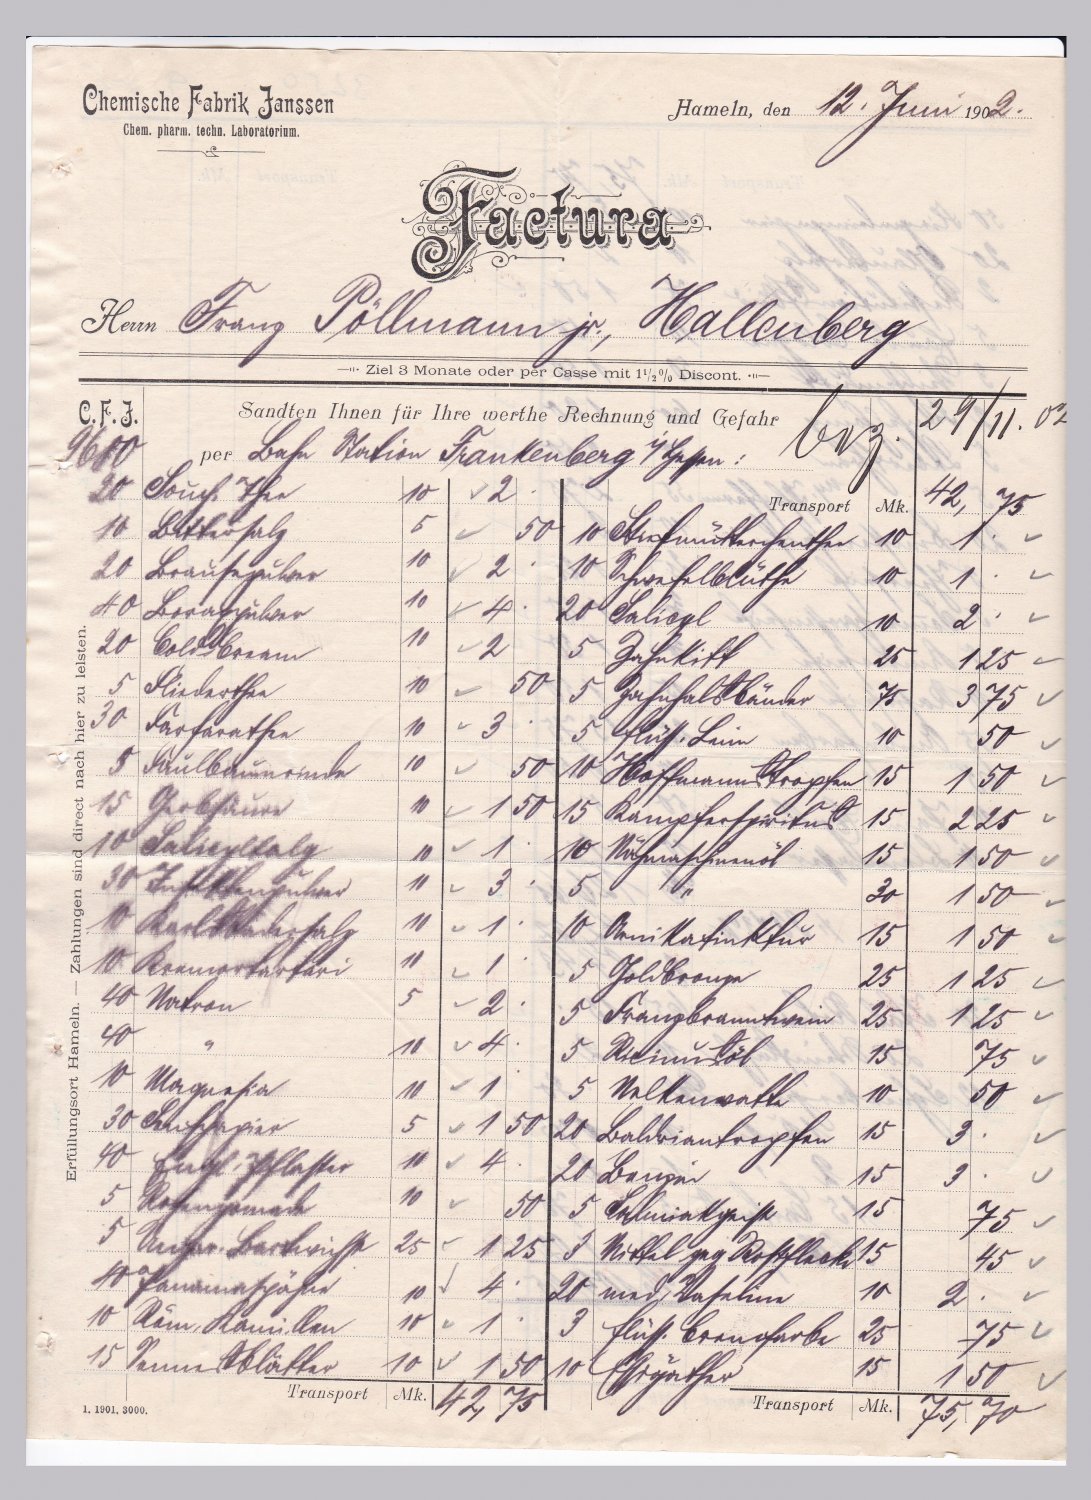 Chemische Fabrik Janssen
Chem. pharm. techn. Laboratorium.
Hameln, den 12. Juni 1902.
Factura
Herrn Franz Pöllmann jr., Hallenberg
Ziel 3 Monate oder per Casse mit 1 1/2 % Discont.
C. F. J.
9680
Sandten Ihnen für Ihre werthe Rechnung und Gefahr
bez. 29/11. 02
per Bahn Station Frankenberg i/Hessen:
20 Souch. Thee 10 2 .
10 Bittersalz 5 50
20 Brausepulver 10 2 .
40 Boraxpulver 10 4 .
20 Coldcream 10 2
5 Fliederthee 10 50
30 Farfarathee 10 3 .
5 Faulbaumrinde 10 50
15 Gerbsäure 10 1 50
10 Salicyltalg 10 1 .
30 Insektenpulver 10 3 .
10 Karlsbadersalz 10 1 .
10 Kremortartari 10 1 .
40 Natron 5 2 .
40 " 10 4 .
10 Magnesia 10 1 .
30 Senfpapier 5 1 50
40 Engl. Pflaster 10 4 .
5 Rosenpomade 10 50
5 Ungar. Bartwichse 25 1 25
40 Panamaspähne 10 4 .
10 Röm. Kamillen 10 1 .
15 Sennesblätter 10 1 50
Transport Mk. 42,75
Transport Mk. 42,75
10 Stiefmütterchenthee 10 1 .
10 Schwefelblüthe 10 1 .
20 Salicyl 10 2 .
5 Zahnkitt 25 1 25
5 Zahnhalsbänder 75 3 75
5 flüss. Leim 10 50
10 Hoffmannstropfen 15 1 50
15 Kampferspiritus 15 2 25
10 Nähmaschinenöl 15 1 50
5 " 30 1 50
10 Arnikatinktur 15 1 50
5 Goldbronze 25 1 25
5 Franzbranntwein 25 1 25
5 Ricinusöl 15 75
5 Nelkenwatte 10 50
20 Baldriantropfen 15 3 .
20 Benzin 15 3 .
5 Salmiakgeist 15 75
3 Mittel geg. Rostflecke 15 45
20 med. Vaseline 10 2 .
3 flüss. Cremefarbe 25 75
10 15 1 50
Transport Mk. 75,70
Erfüllungsort Hameln. — Zahlungen sind direct nach hier zu leisten.
1. 1901. 3000.